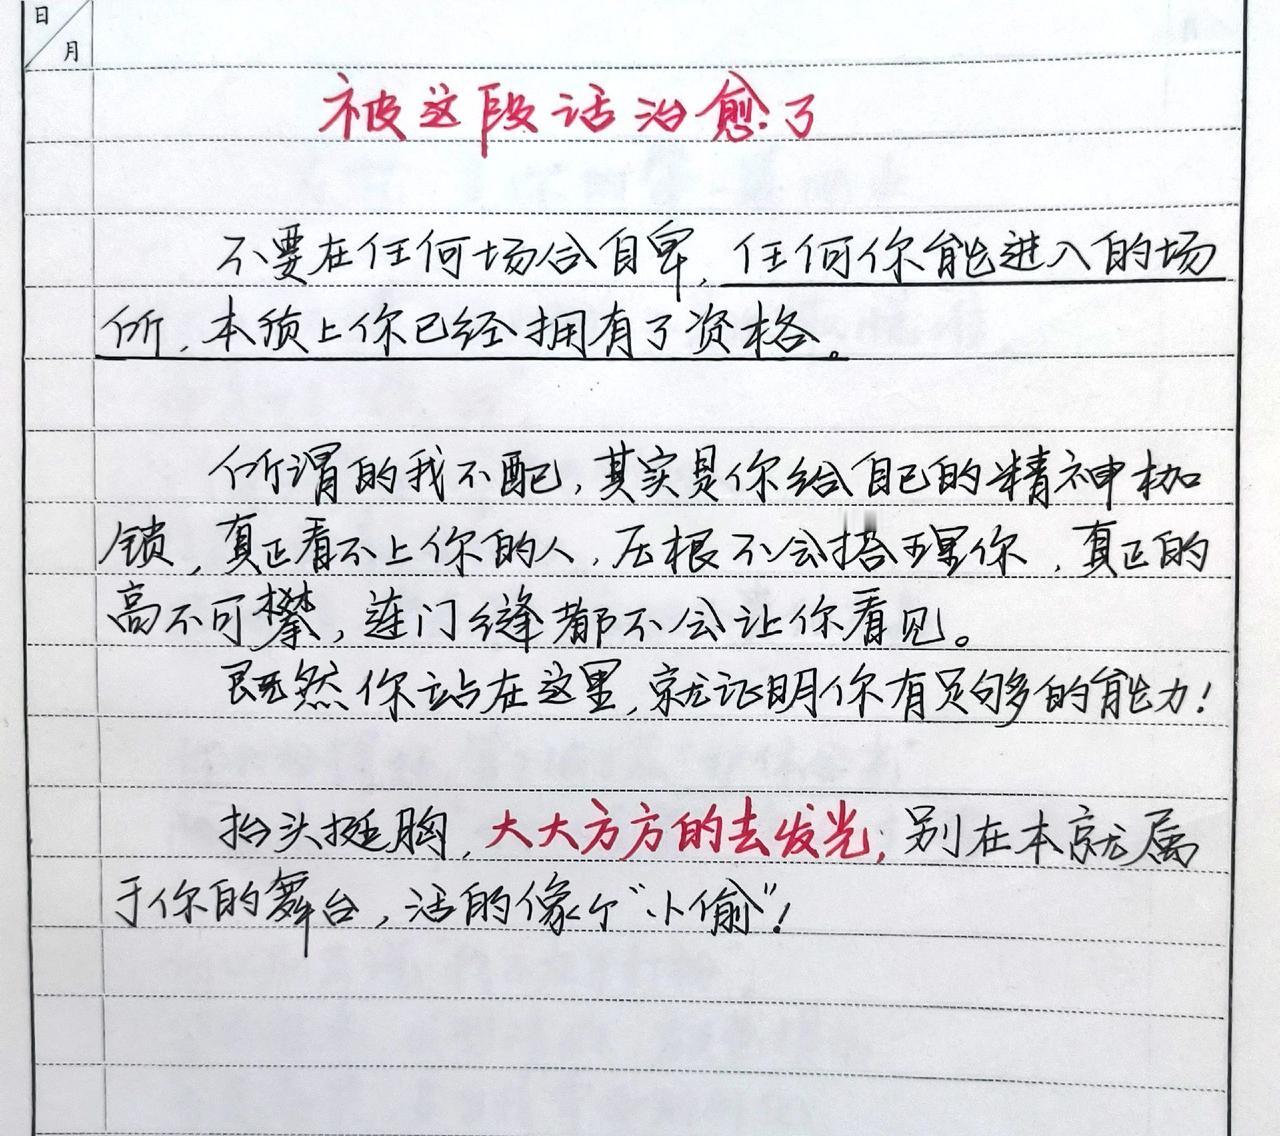 日
月
被这段话治愈了
不要在任何场合自卑,任何你能进入的场
所,本质上你已经拥有了资格。
所谓的我不配,其实是你给自己的精神枷
锁,真正看不上你的人,压根不会搭理你,真正的
高不可攀,连门缝都不会让你看见。
既然你站在这里,就证明你有足够多的能力!
抬头挺胸,大大方方的去发光;别在本就属
于你的舞台,活的像个“小偷”!